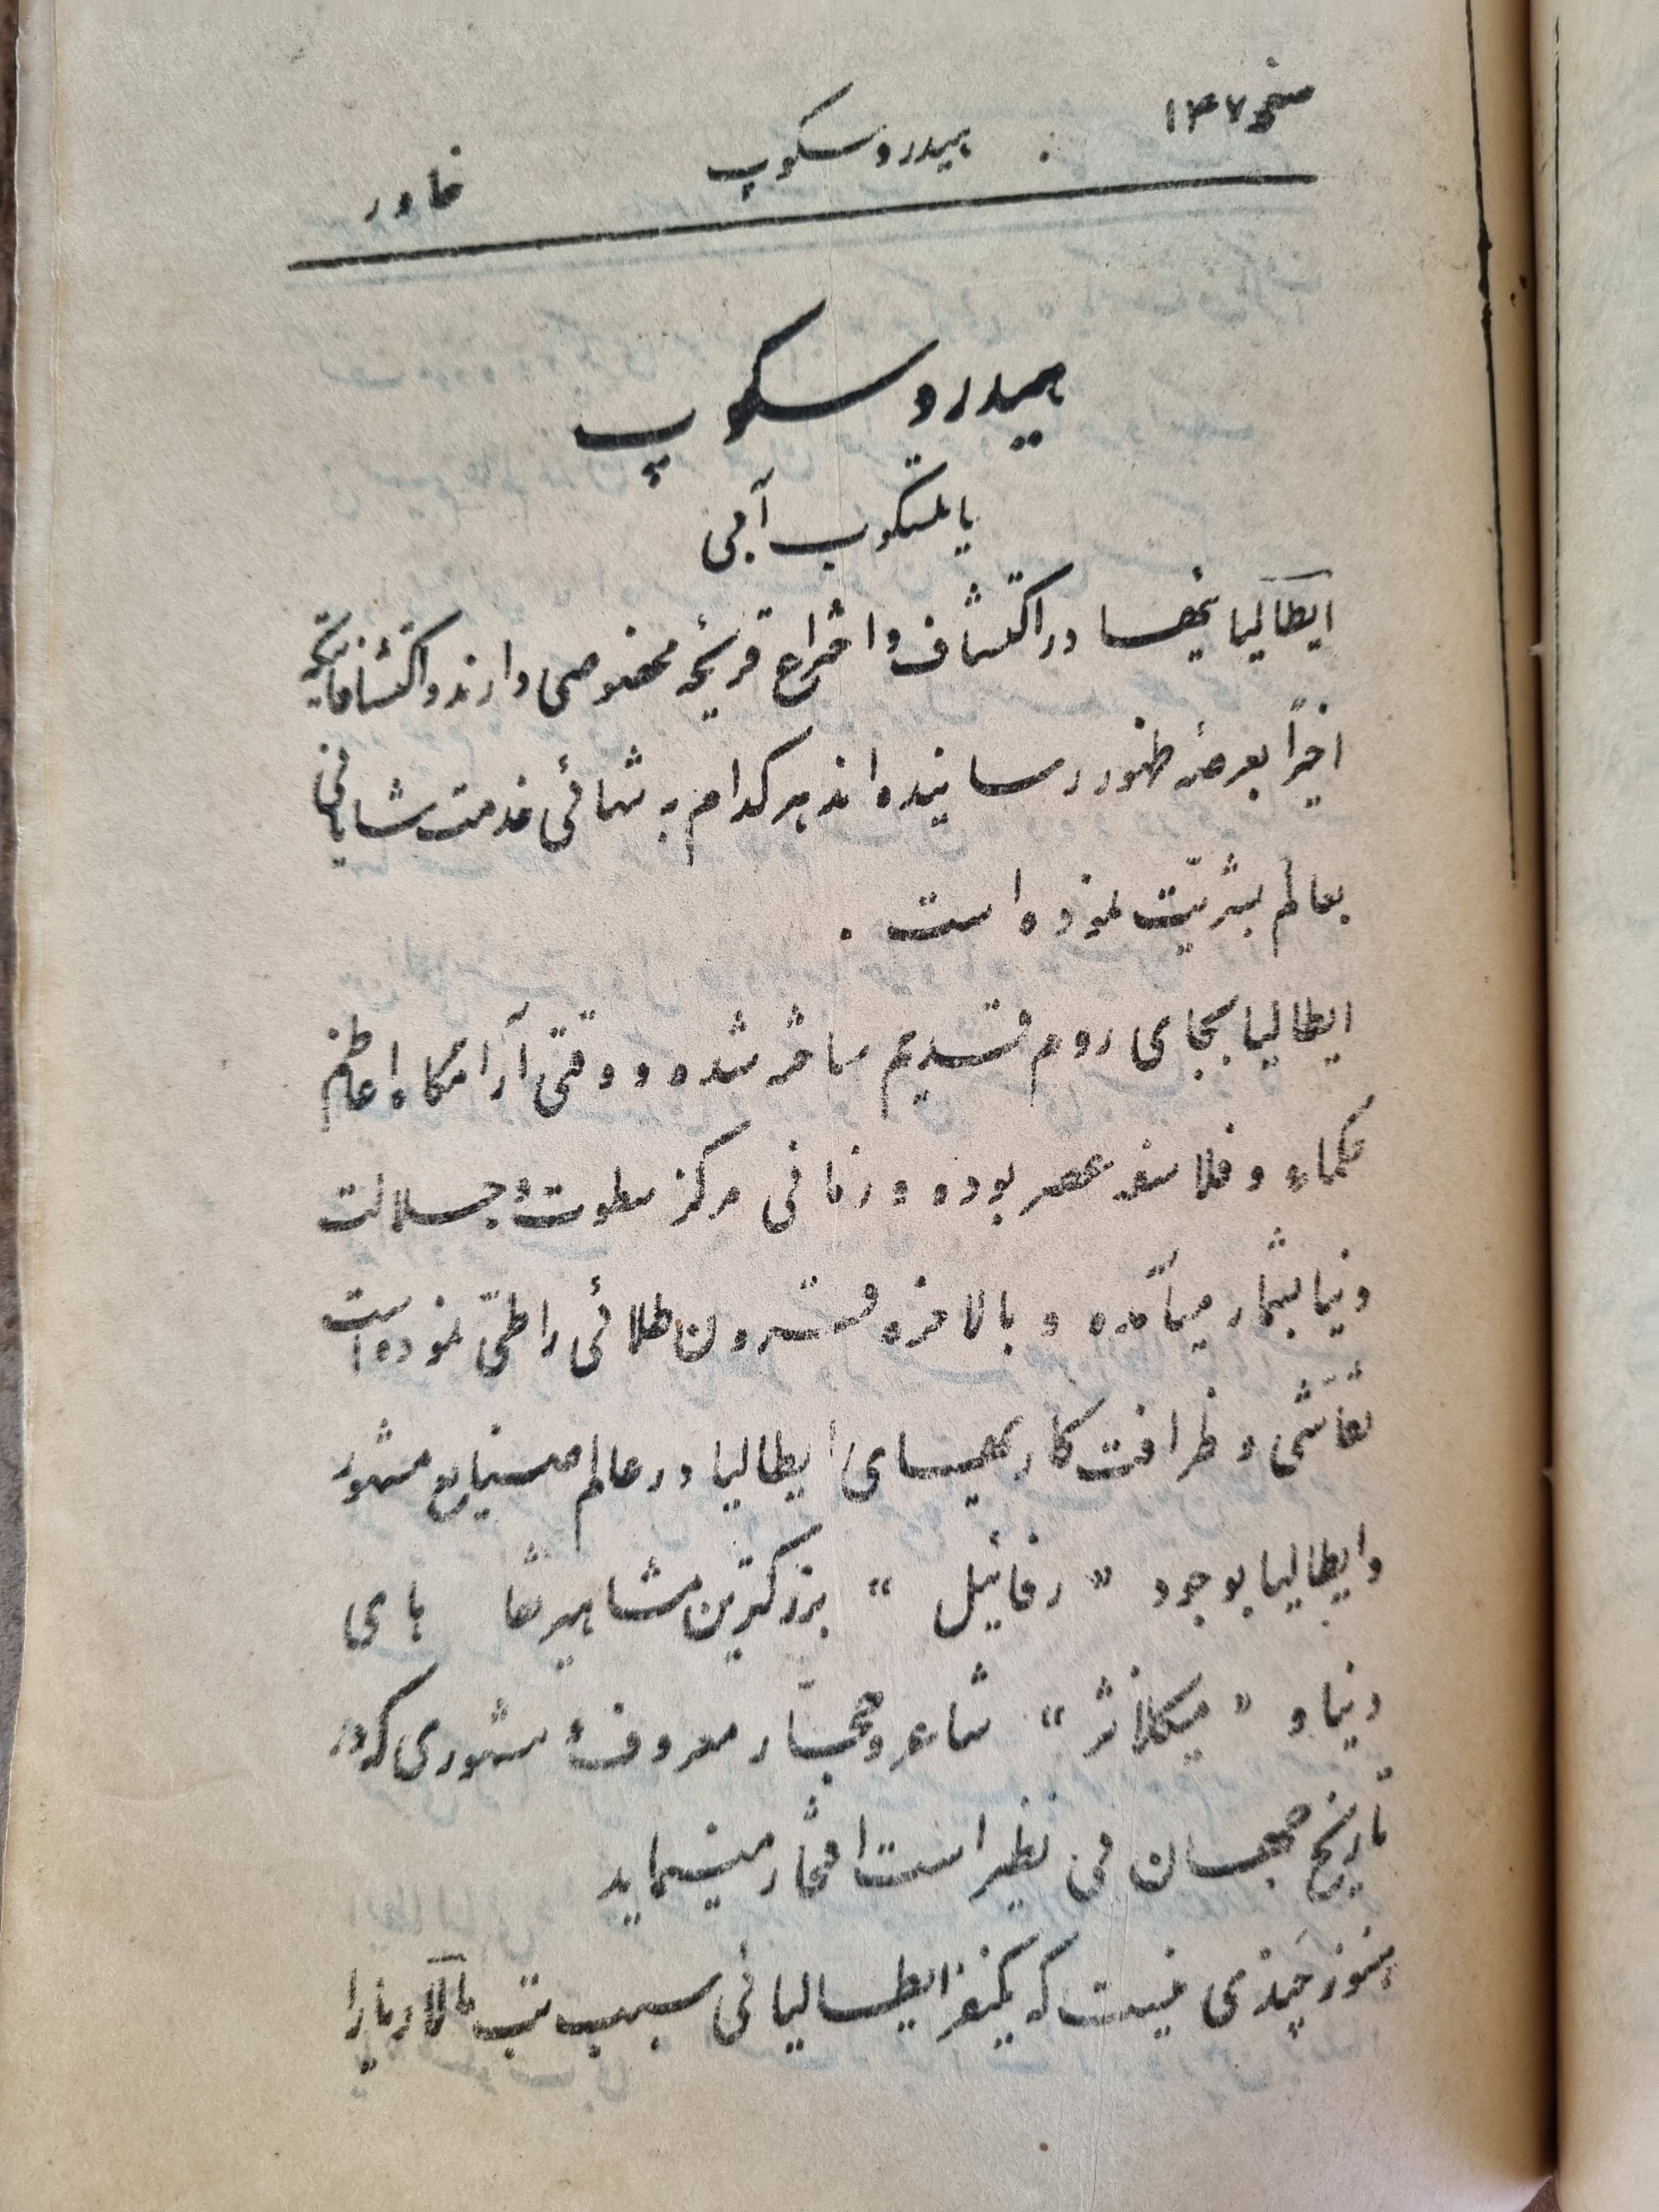 صفحه ۱۳۷ هیدروسکوپ خاور
هیدروسکوپ
یا تلسکوپ آبی
ایطالیائیها در اکتشاف و اختراع قریحهٔ مخصوصی دارند و اکتشافاتیکه
اخیراً بعرصهٔ ظهور رسانیده‌اند هر کدام به تنهائی خدمت شایانی
بعالم بشریّت نموده است .
ایطالیا بجای روم قدیم ساخته شده و وقتی آرامگاه اعاظم
حکماء و فلاسفه عصر بوده و زمانی مرکز سطوت و جلالت
دنیا بشمار میآمده و بالاخره قرون طلائی را طیّ نموده است
نقاشی و ظرافت کاریهای ایطالیا در عالم صنایع مشهور
و ایطالیا بوجود « رفائیل » بزرگترین مشاهیر نقا های
دنیا و « میکلانژ » شاعر و حجّار معروف مشهوری که در
تاریخ جهان بی نظیر است افتخار مینماید
هنوز چندی نیست که یکنفر ایطالیائی سبب تب مالاریا را